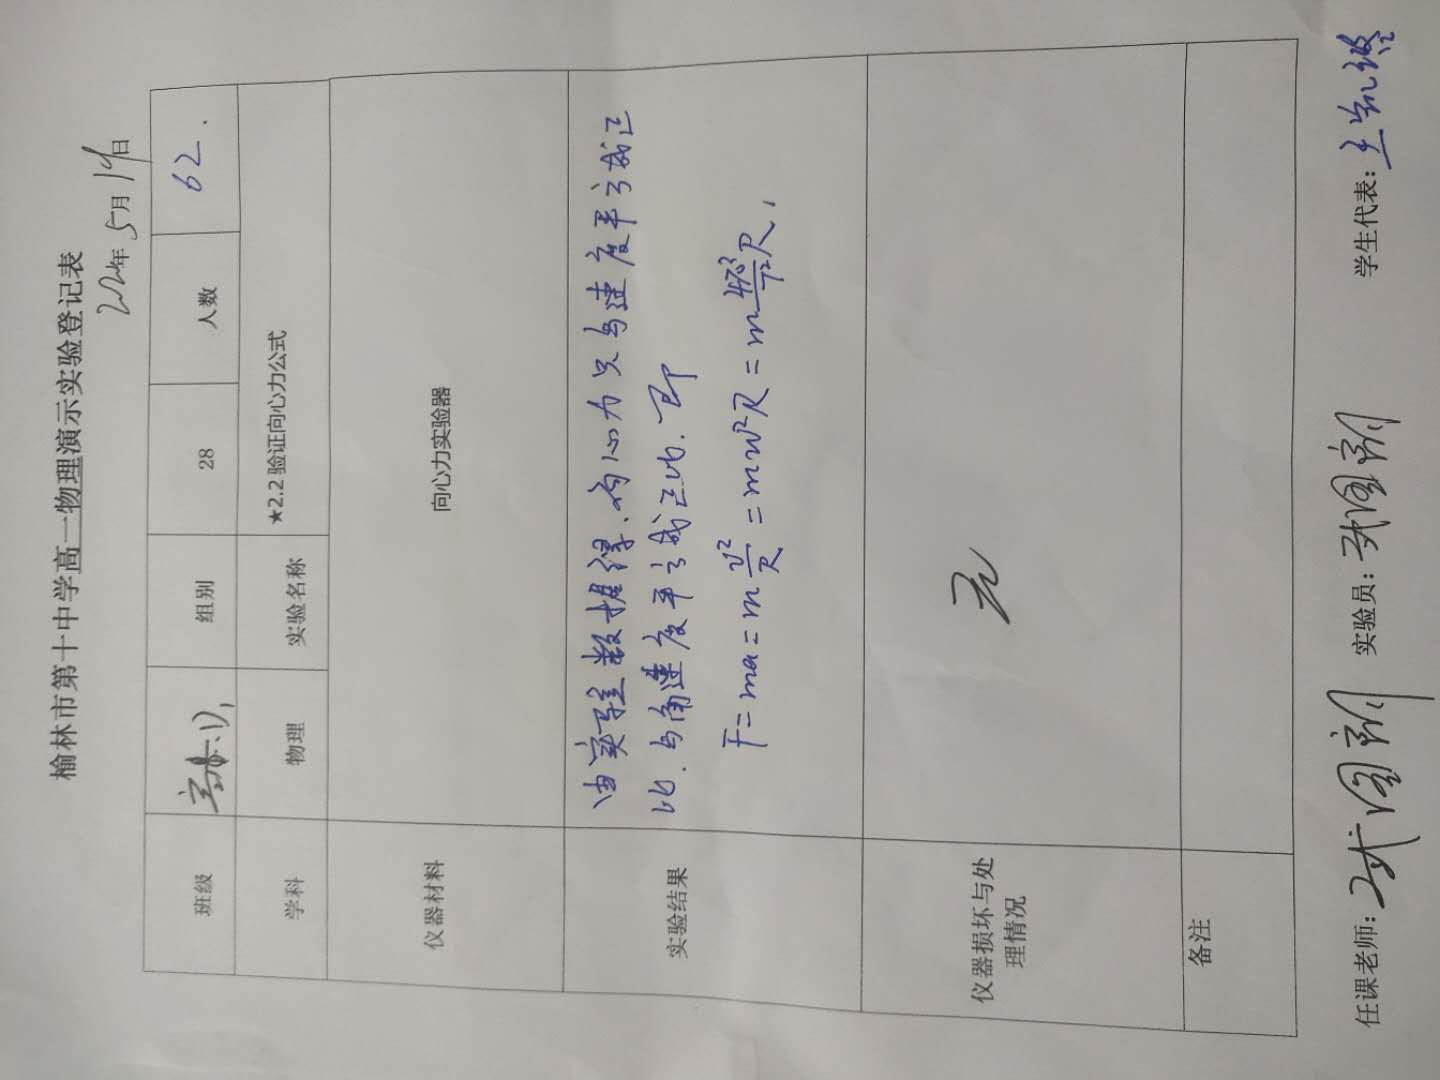 榆林市第十中学高一物理演示实验登记表
年5月19日
班级 组别 28 人数 62.
学科 物理 实验名称 ★2.2 验证向心力公式
仪器材料 向心力实验器
实验结果
由实验数据得,向心力只与速度平方成正
比.与角速度平方成正比.即
F=ma=m\frac{v²}{R}=mw²R=m\frac{4π²}{T²}R,
仪器损坏与处
理情况
无
备注
任课老师: 实验员: 学生代表: